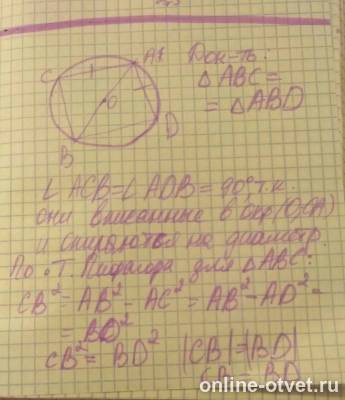 A
C
O
D
B
Док-ть:
△ABC =
= △ABD
∠ACB=∠ADB = 90°, т.к.
они вписанные в окр(O;OA)
и опираются на диаметр.
По т. Пифагора для △ABC:
CB² = AB² - AC² = AB² - AD² =
= BD²
CB² = BD² |CB|=|BD|
CB = BD
online-otvet.ru